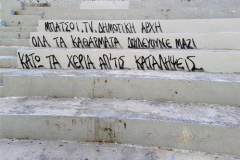 ΜΠΑΤΣΟΙ, T.V, ΔΗΜΟΤΙΚΗ ΑΡΧΗ
ΟΛΑ ΤΑ ΚΑΘΑΡΜΑΤΑ ΔΟΥΛΕΥΟΥΝΕ ΜΑΖΙ
ΚΑΤΩ ΤΑ ΧΕΡΙΑ ΑΠ'ΤΙΣ ΚΑΤΑΛΗΨΕΙΣ